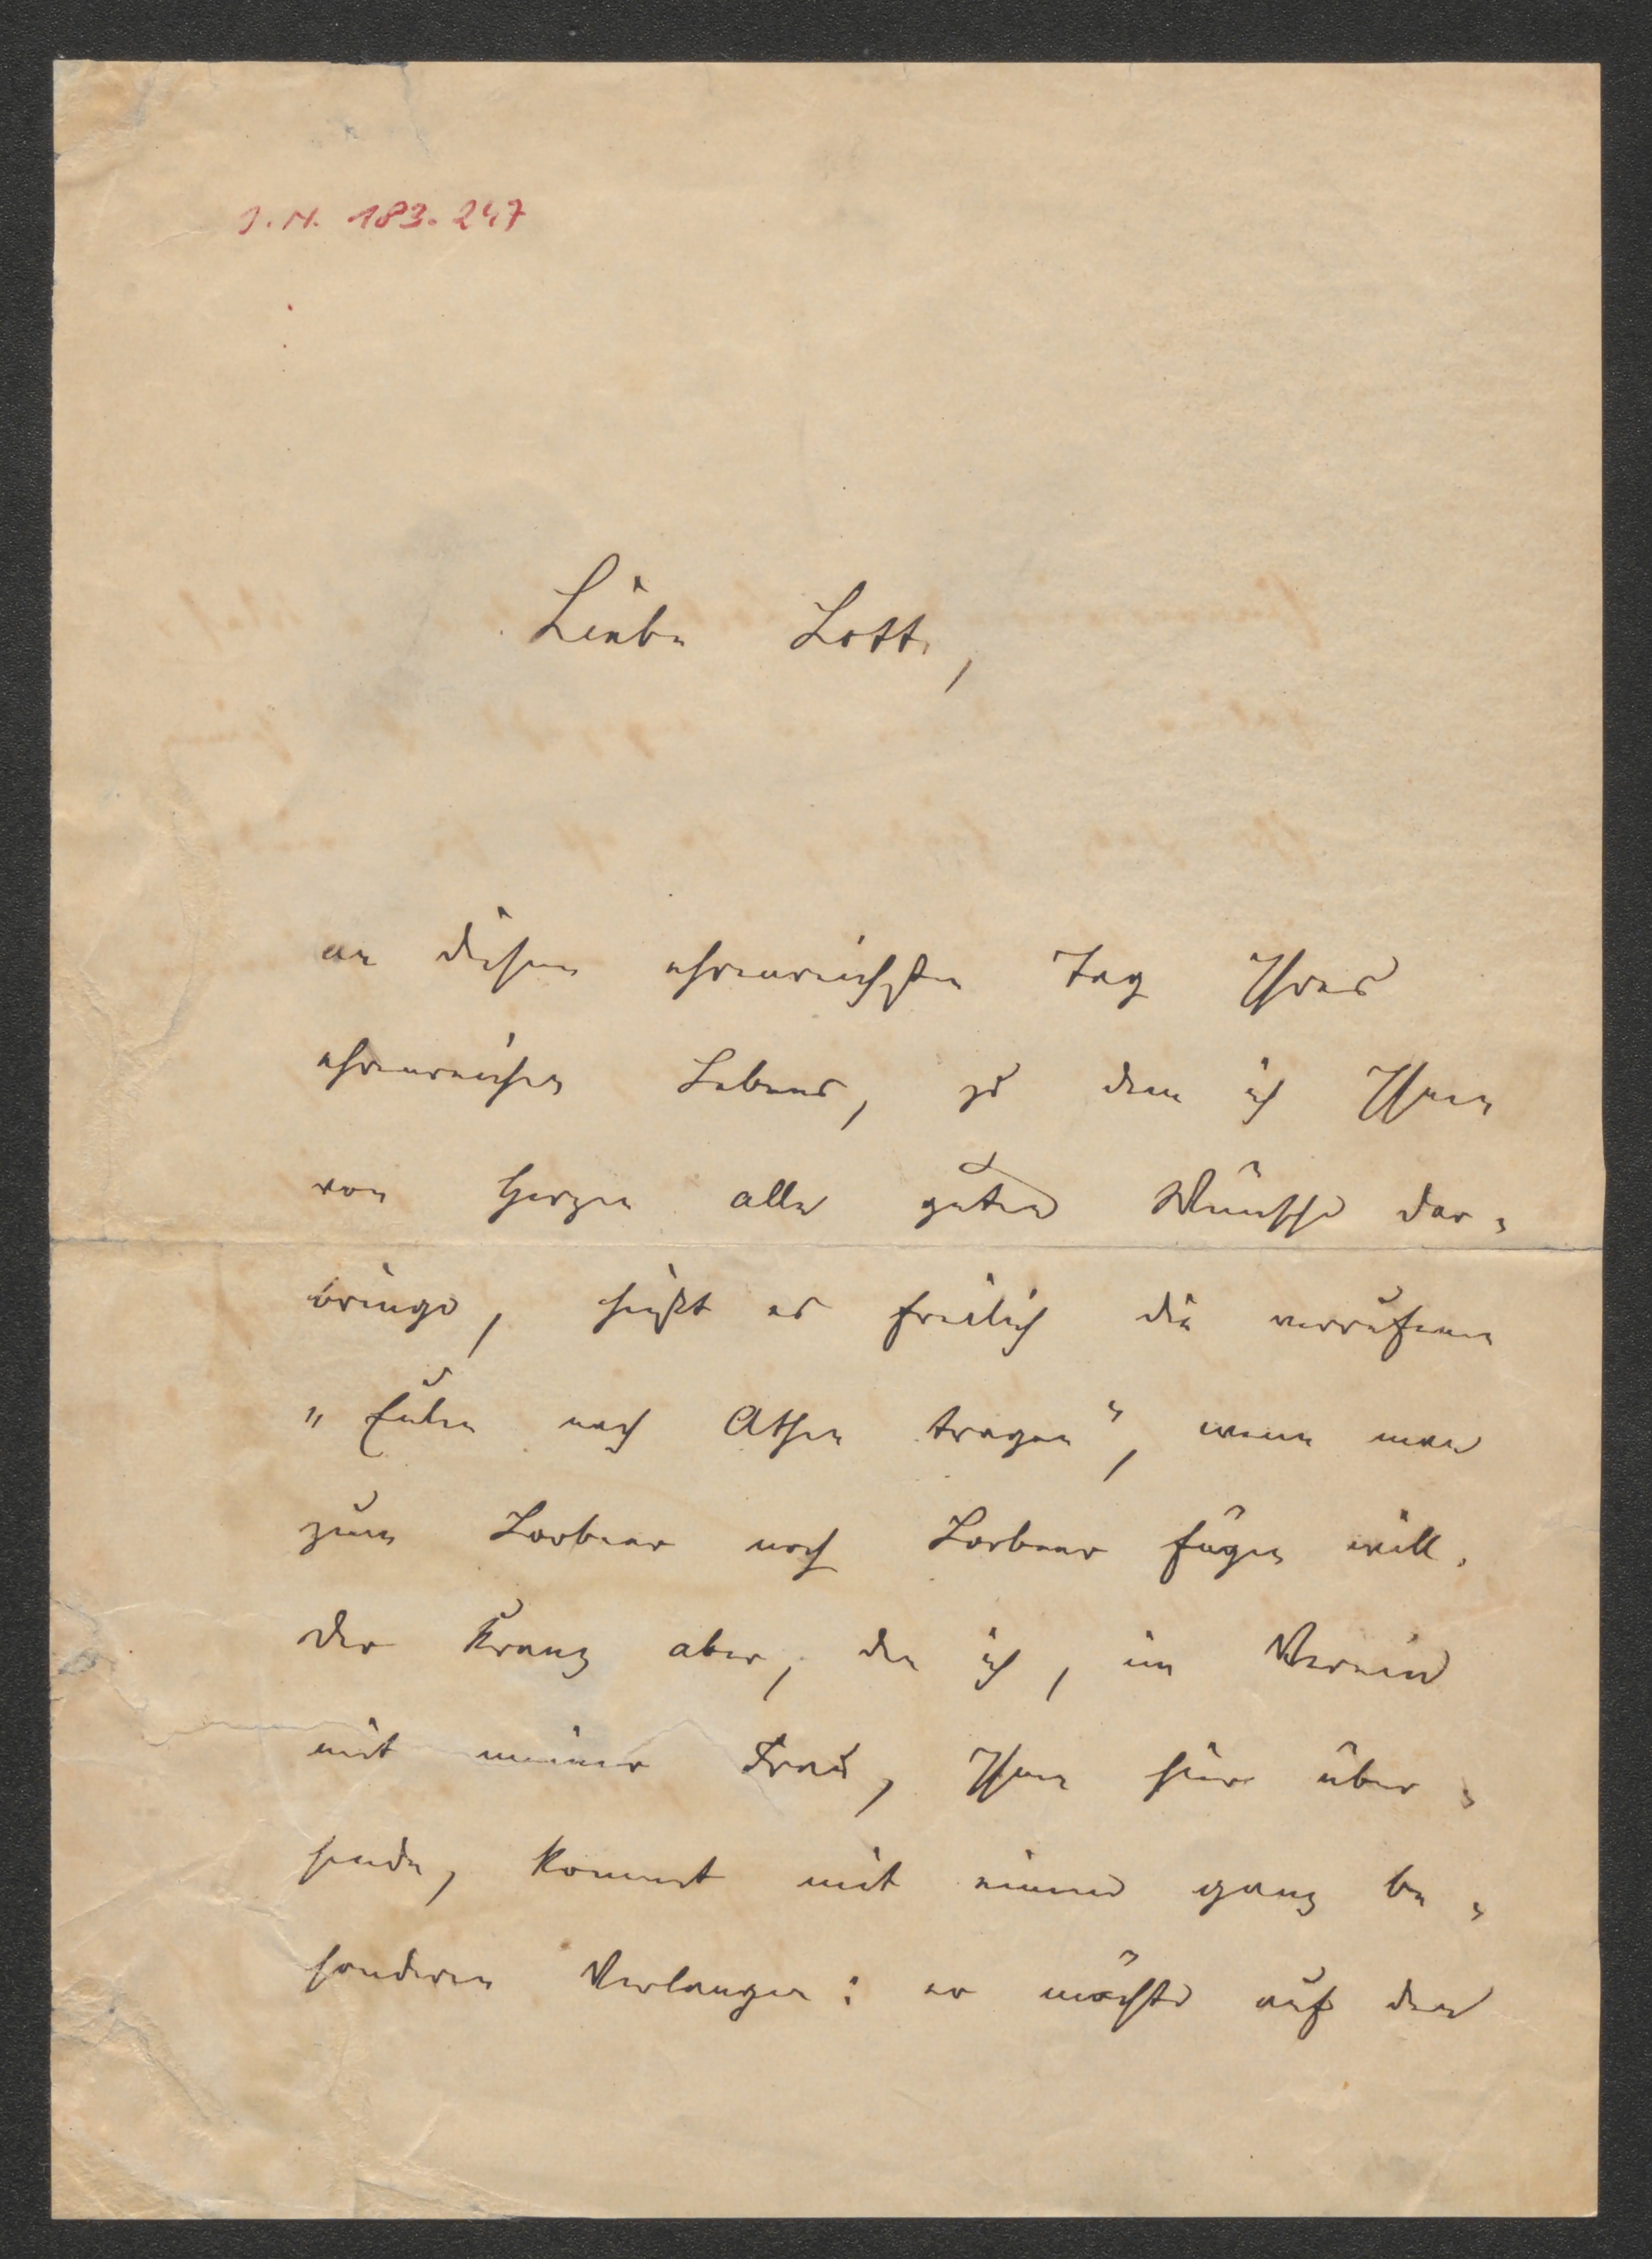 J.N. 183.247
Liebe Lotte,
an diesem ehrenreichsten Tag Ihres
ehrenreichen Lebens, zu dem ich Ihnen
von Herzen alle guten Wünsche dar-
bringe, heißt es freilich die verrufenen
„Eulen nach Athen tragen", wenn man
zum Lorbeer noch Lorbeer fügen will.
Der Kranz aber, den ich, im Verein
mit meiner Frau, Ihnen hier über-
sende, kommt mit einem ganz be-
sonderen Verlangen: er möchte auf den